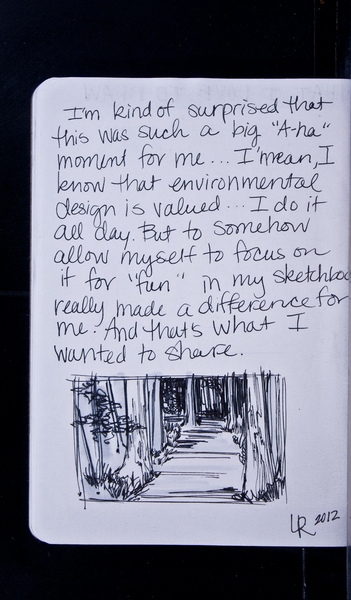 I'm kind of surprised that
this was such a big "A-ha"
moment for me... I mean, I
know that environmental
design is valued... I do it
all day. But to somehow
allow myself to focus on
it for "fun" in my sketchboo
really made a difference for
me. And that's what I
wanted to share.
LR 2012